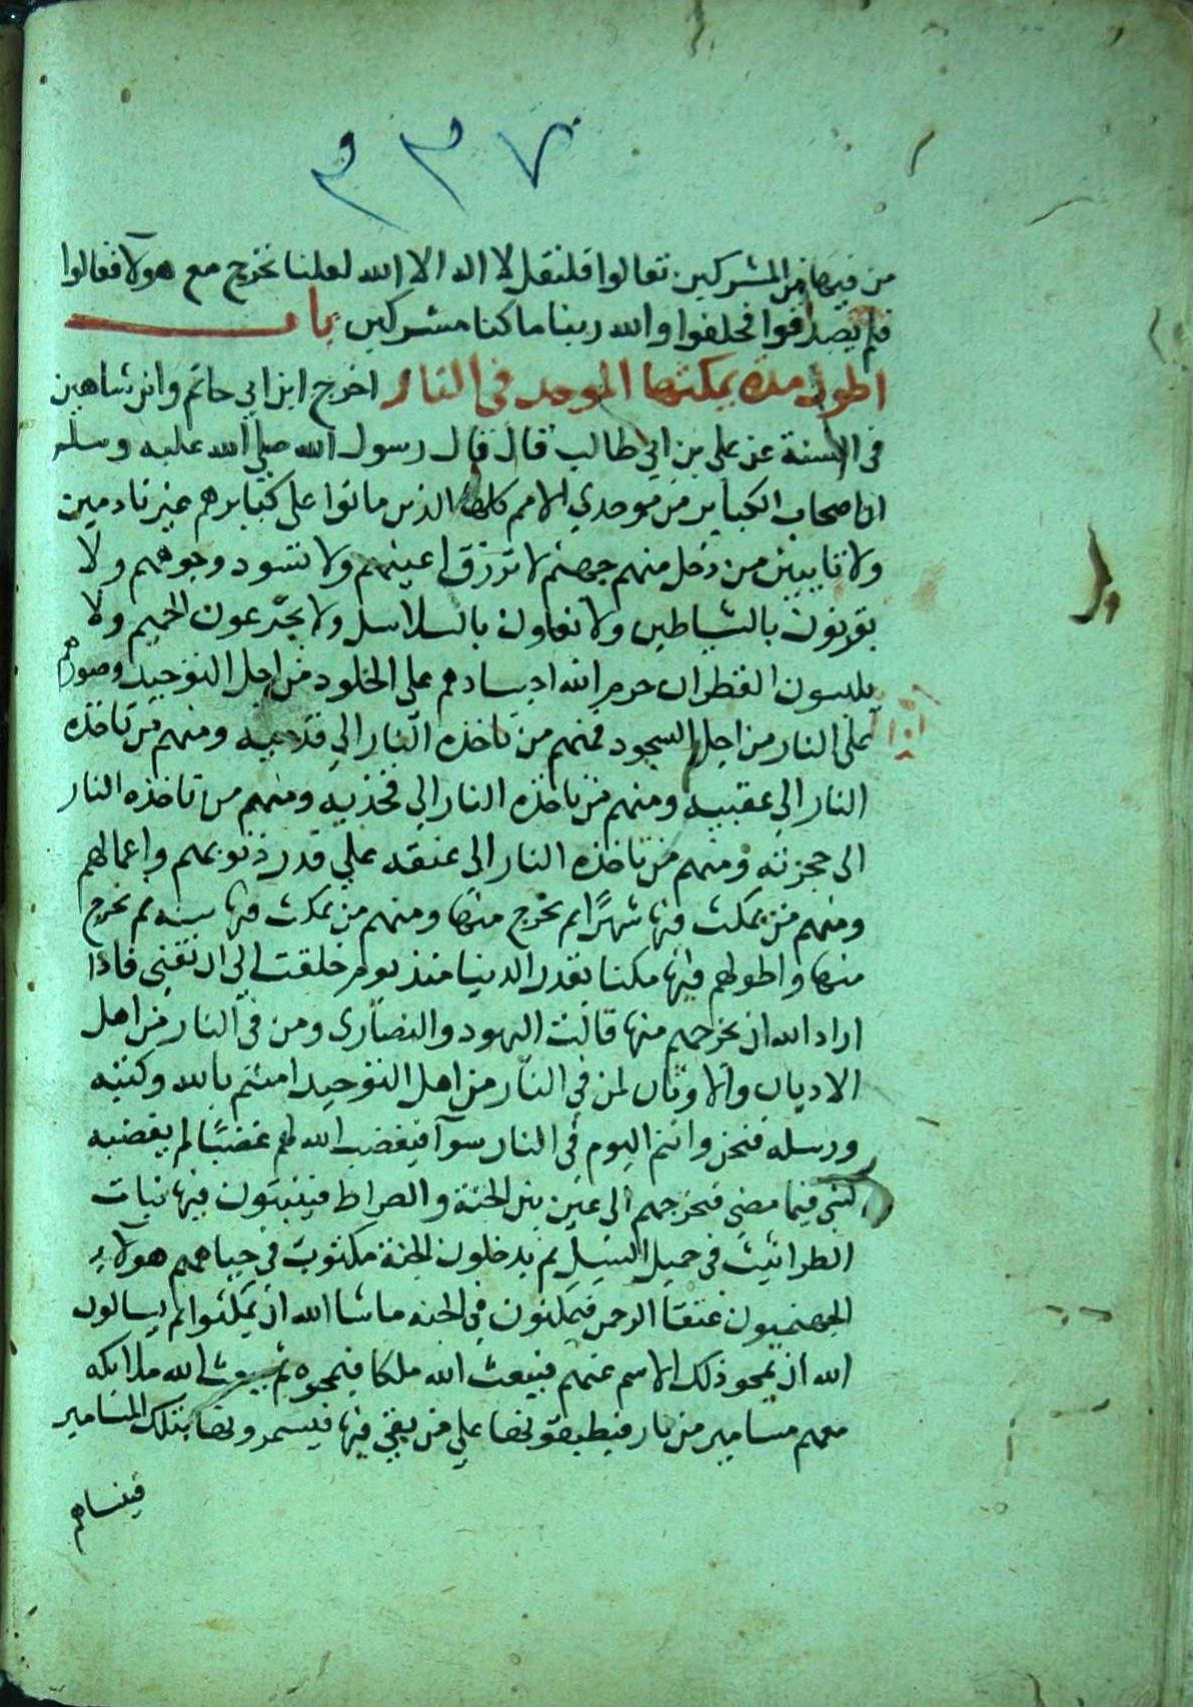 ٧٣٣
من فيها من المشركين تعالوا فلنقل لا اله الا الله لعلنا نخرج مع هولآ فقالوا
فلم يصدقوا فحلفوا والله ربنا ما كنا مشركين باب
اطول مدة يمكثها الموحد في النار اخرج ابن ابي حاتم وابن شاهين
في السنة عن علي بن ابي طالب قال قال رسول الله صلي الله عليه وسلم
ان اصحاب الكباير من موحدي الامم كلها الذين ماتوا على كبايرهم غير نادمين
ولا تايبين من دخل منهم جهنم لا تزرق اعينهم ولا تسود وجوههم ولا
يقرنون بالشياطين ولا يغلون بالسلاسل ولا يجرعون الحميم ولا
يلبسون القطران حرم الله اجسادهم على الخلود من اجل التوحيد وصورهم
على النار من اجل السجود فمنهم من تاخذه النار الي قدميه ومنهم من تاخذه
النار الي عقبيه ومنهم من تاخذه النار الي فخذيه ومنهم من تاخذه النار
الى حجزته ومنهم من تاخذه النار الى عنقه علي قدر ذنوبهم واعمالهم
ومنهم من يمكث فيها شهرًا ثم يخرج منها ومنهم من يمكث فيها سنه ثم يخرج
منها واطولهم فيها مكثا بقدر الدنيا منذ يوم خلقت الي ان تفني فاذا
اراد الله ان يخرجهم منها قالت اليهود والنصارى ومن في النار من اهل
الاديان والاوثان لمن في النار من اهل التوحيد امنتم بالله وكتبه
ورسله فنحن وانتم اليوم في النار سوآ فيغضب الله لهم غضبًا لم يغضبه
لشي فيما مضي فيخرجهم الى عين بين الجنة والصراط فينبتون فيها نبات
الطراثيث في حميل السيل ثم يدخلون الجنة مكتوب في جباههم هولآء
الجهنميون عتقا الرحمن فيمكثون في الجنه ما شا الله ان يمكثوا ثم يسالون
الله ان يمحو ذلك الاسم عنهم فيبعث الله ملكا فيمحوه ثم يبعث الله ملايكه
معهم مسامير من نار فيطبقونها علي من بقي فيها فيسمرونها بتلك المسامير
فينساهم